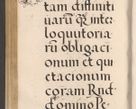 tam diffinitiu
arū q̃ inter
loquutoria
rū obligati
onum et qui
tacionum
coram Rnd
dominoꝑe